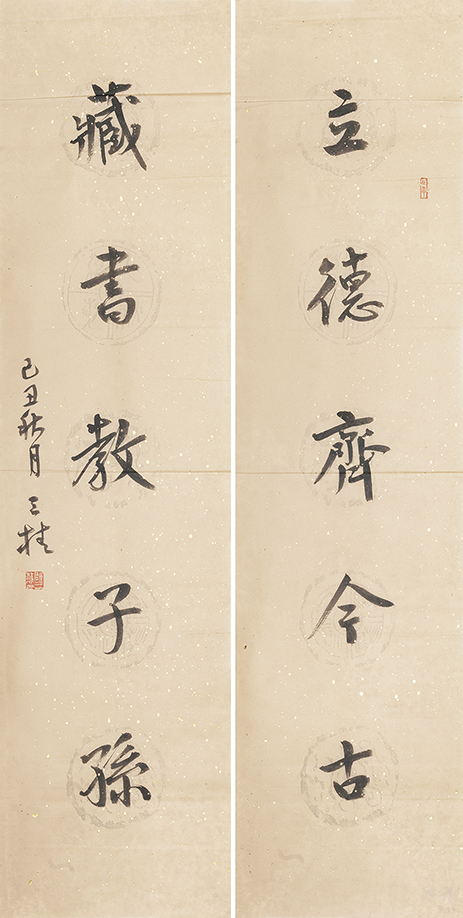 立德齊今古
藏書教子孫
己丑秋月 三桂